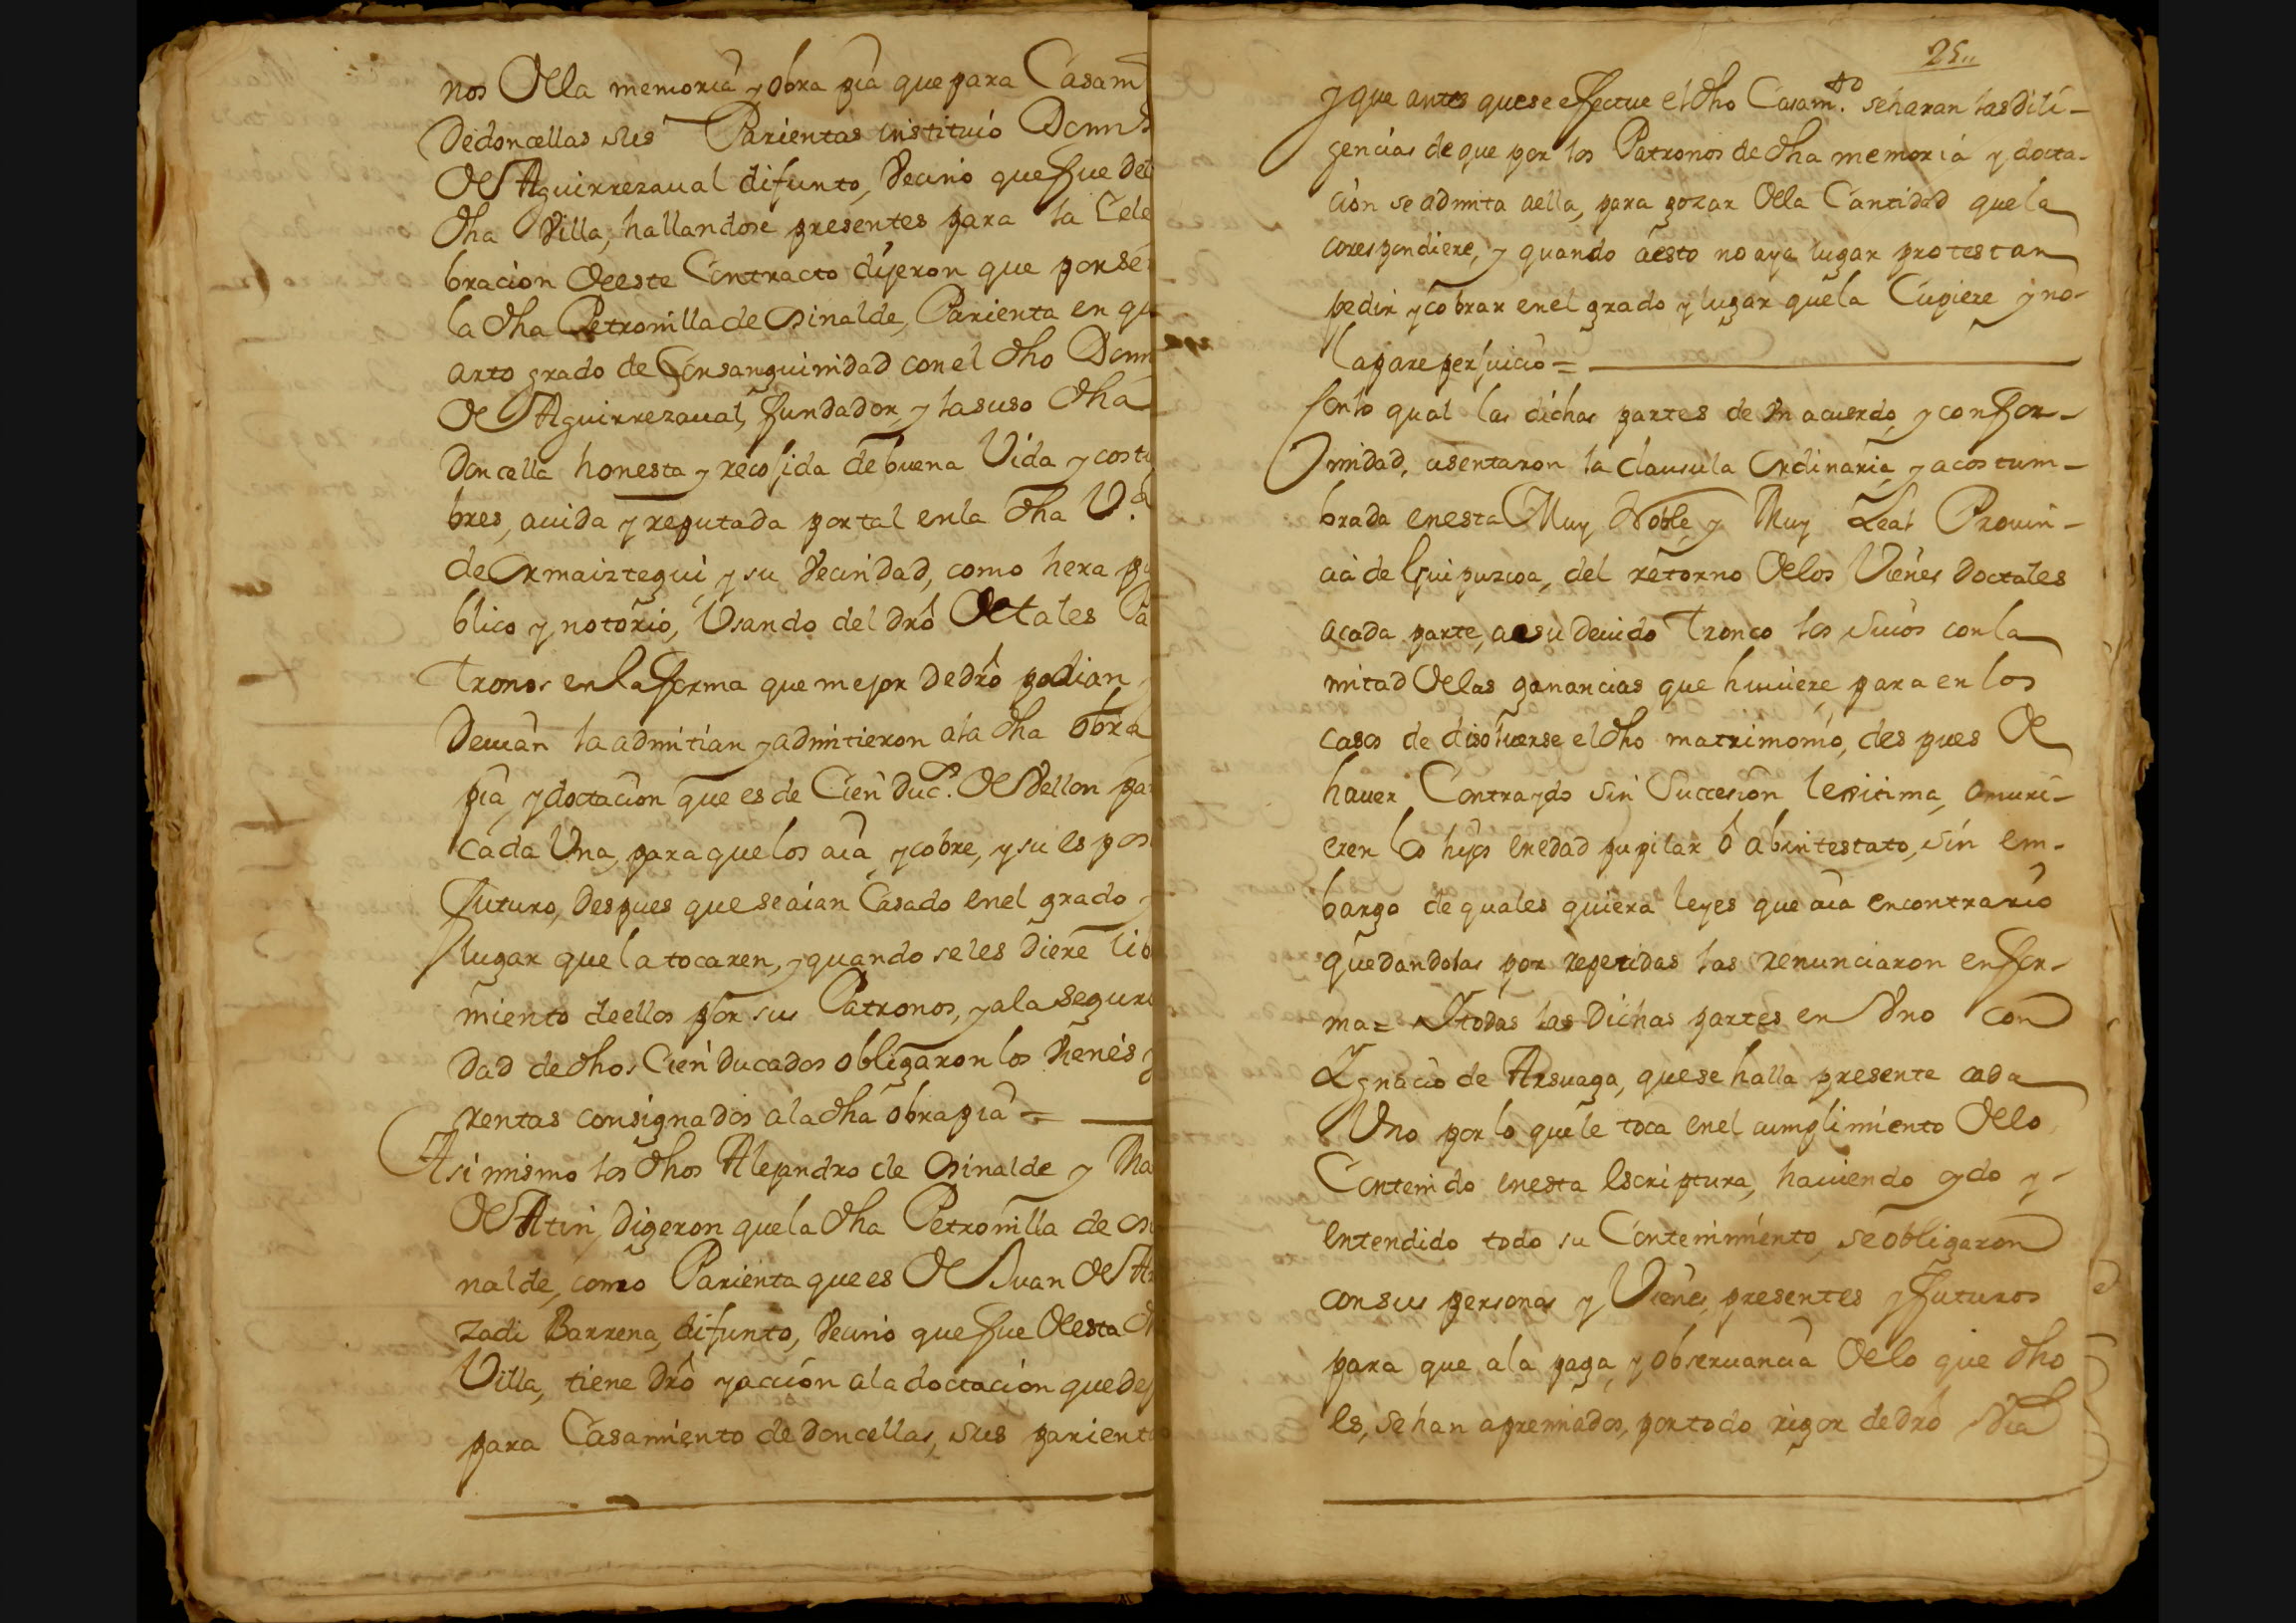 nos della memoria y obra pia que para Casam
de doncellas sus Parientas instituió Domi
de Aguirrezaual difunto, Vecino que fue de
dha Villa, hallandose presentes para la Cele
bracion deeste Contracto dijeron que por se
la dha Petronilla de Osinalde, Parienta en qu
arto grado de Consanguinidad con el dho Dom
de Aguirrezaual, fundador, y la suso dha
Doncella honesta y recojida de buena Vida y costu
bres, auida y reputada por tal en la dha V.ª
de Ormaiztegui, y su Vecindad, como hera pu
blico y notorio, Usando del dró de tales Pa
tronos en la forma que mejor de dró podian y
Deuian la admitian y admitieron a la dha obra
pia, y doctacion que es de Cien Duc.s de Vellon pa
cada Una, para que los aia, y cobre, y su espos
futuro, Despues que se aian Casado en el grado y
lugar que la tocaren, y quando se les diere lib
miento de ellos por sus Patronos, y a la seguri
dad de dhos Cien ducados obligaron los Vienes y
rentas consignados a la dha obra pia =
Asi mismo los dhos Alejandro de Osinalde y Ma
de Atin, digeron que la dha Petronilla de Osi
nalde, como Parienta que es de Juan de Ar
zadi Barrena, difunto, Vecino que fue de esta dh
Villa, tiene dró y accion a la doctacion que de
para Casamiento de doncellas, sus parient
25
y que antes que se effectue el dho Casam.to se haran las dili-
gencias de que por los Patronos de dha memoria y docta-
cion se admita a ella, para gozar della Cantidad que la
corespondiere, y quando a esto no aya lugar protestan
pedir y cobrar en el grado y lugar que la Cupiere y no
la pare perjuicio =
Con lo qual las dichas partes de Vn acuerdo, y confor-
midad, asentaron la clausula Ordinaria, y acostum-
brada en esta Muy Noble, y Muy Leal Prouin-
cia de Guipuzcoa, del retorno de los Vienes doctales
a cada parte, a su deuido Tronco los suios con la
mitad de las ganancias que huuiere, para en los
casos de disoluerse el dho matrimonio, des pues de
hauer Contraydo sin Succesion lexitima, o muri-
eren los hijos en edad pupilar ó abintestato, sin em-
bargo de quales quiera leyes que aia en contrario
quedandolas por repetidas las renunciaron en for-
ma = Y todas las dichas partes en Vno con
Ygnacio de Arsuaga, que se halla presente cada
Uno por lo que le toca en el cumplimiento dello
Contenido en esta Escriptura, hauiendo oydo y
entendido todo su Contenimiento, se obligaron
con sus personas y Vienes, presentes y futuros
para que a la paga, y obseruancia de lo que dho
es, sehan apremiados, por todo rigor de dró Via